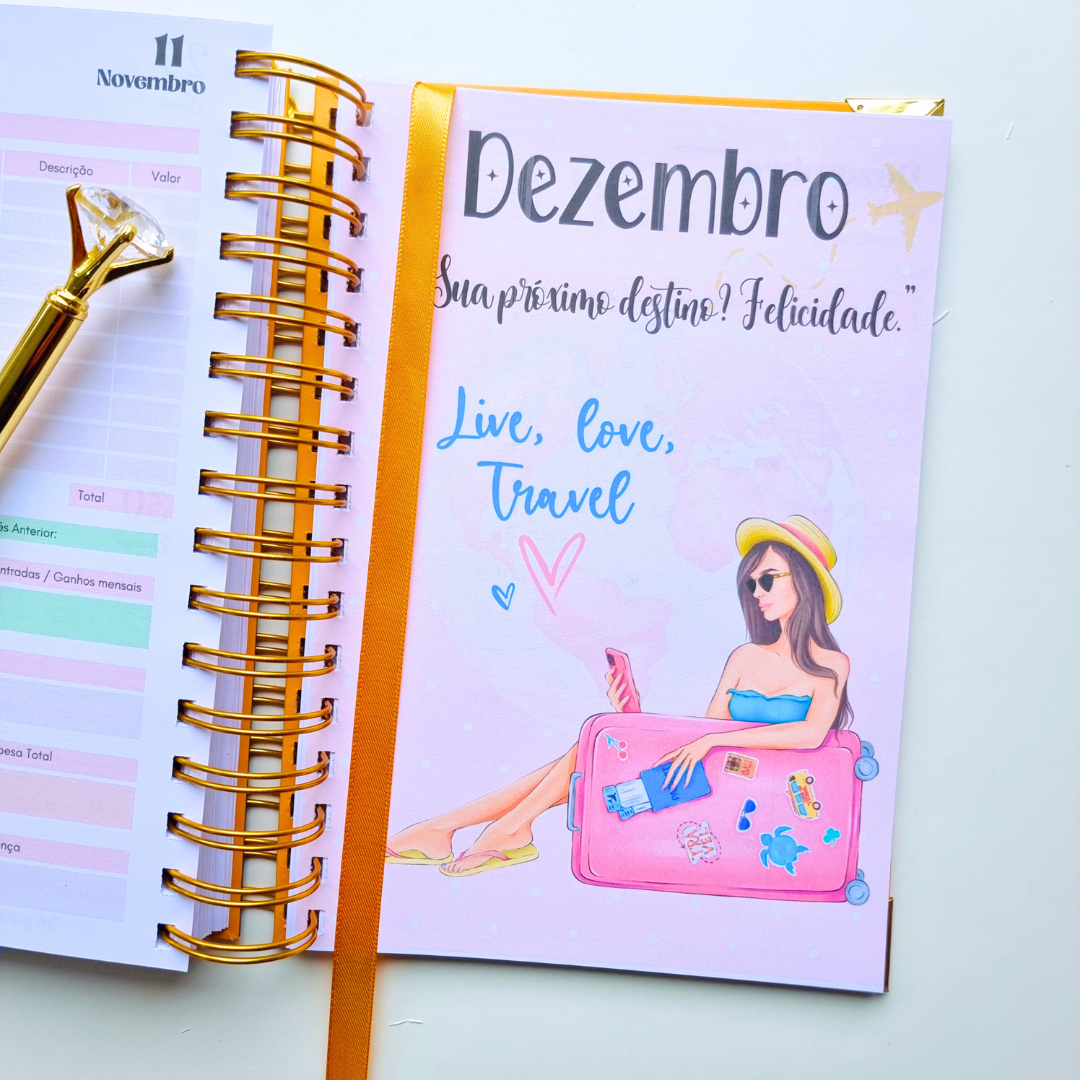 11
Novembro
Descrição Valor
Total
ês Anterior:
ntradas / Ganhos mensais
pesa Total
nça
Dezembro
Sua próximo destino? Felicidade."
Live, love,
Travel